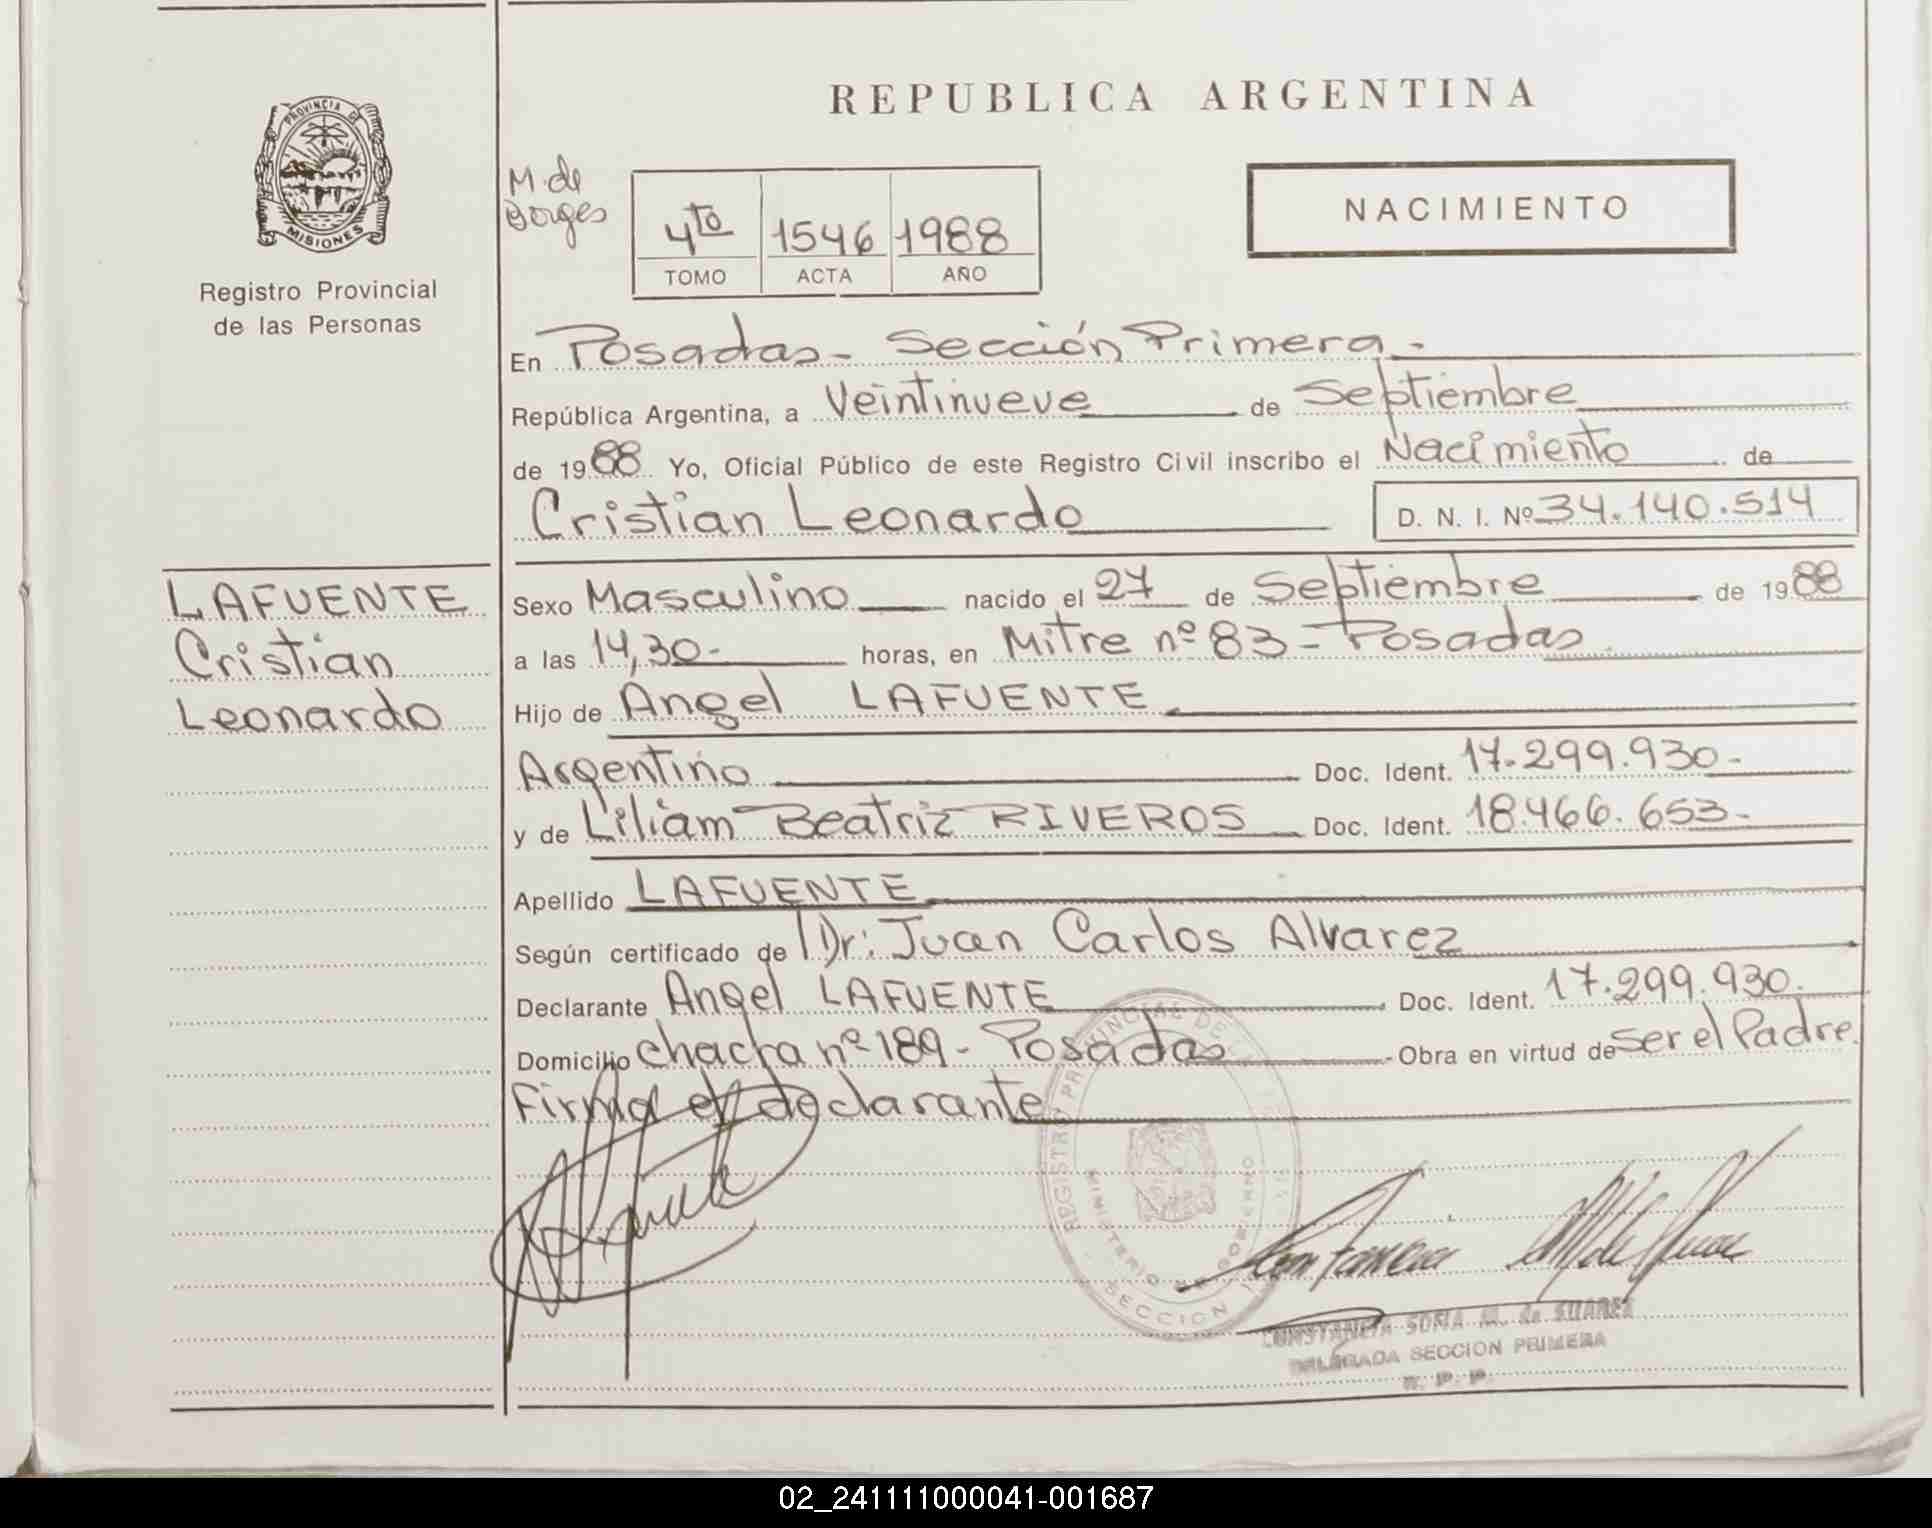 REPUBLICA ARGENTINA
PROVINCIA DE
MISIONES
Registro Provincial
de las Personas
M. de
Borges
4to 1546 1988
TOMO ACTA AÑO
NACIMIENTO
En Posadas - Sección Primera.-
República Argentina, a Veintinueve de Septiembre
de 1988 Yo, Oficial Público de este Registro Civil inscribo el Nacimiento de
Cristian Leonardo D. N. I. Nº 34.140.514
LAFUENTE
Cristian
Leonardo
Sexo Masculino nacido el 27 de Septiembre de 1988
a las 14,30- horas, en Mitre nº 83 - Posadas
Hijo de Angel LAFUENTE
Argentino Doc. Ident. 17.299.930-
y de Liliam Beatriz RIVEROS Doc. Ident. 18.466.653-
Apellido LAFUENTE
Según certificado de Dr: Juan Carlos Alvarez
Declarante Angel LAFUENTE Doc. Ident. 17.299.930.
Domicilio chacra nº 189 - Posadas Obra en virtud de ser el Padre.
Firma el declarante
REGISTRO PROVINCIAL DE LAS
MINISTERIO DE GOBIERNO
SECCION
CONSTANCIA SOFIA M. de SUAREZ
DELEGADA SECCION PRIMERA
R. P. P.
02_241111000041-001687